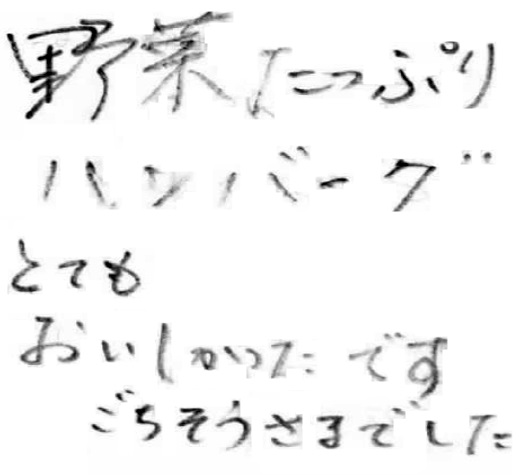 野菜たっぷり
ハンバーグ
とても
おいしかったです
ごちそうさまでした